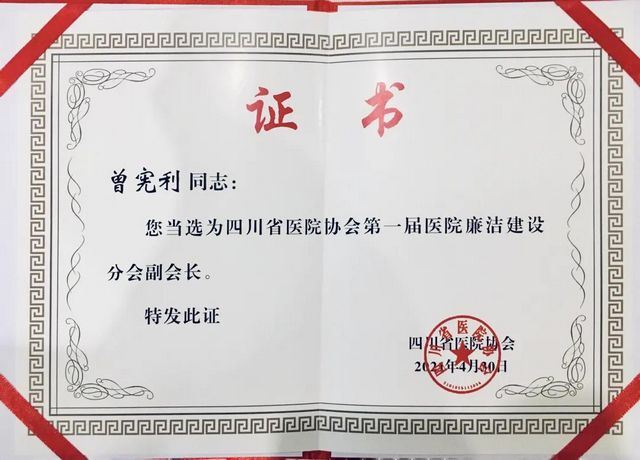 证 书
曾宪利 同志：
您当选为四川省医院协会第一届医院廉洁建设
分会副会长。
特发此证
四川省医院协会
2021年4月10日
四川省医院协会